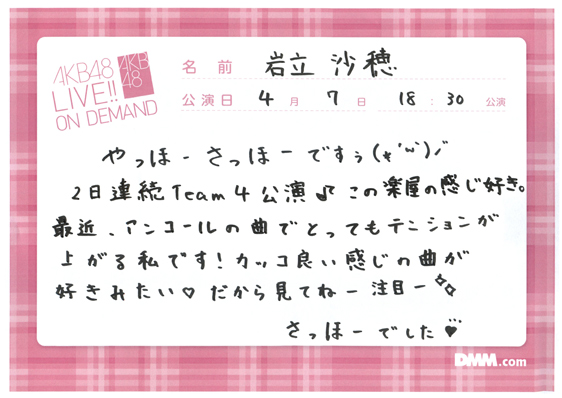 AKB48
LIVE!!
ON DEMAND
AKB
48
名前 岩立 沙穂
公演日 4月 7日 18:30 公演
やっほーさっほーですぅ(*'ω')ノ
2日連続Team4公演♪この楽屋の感じ好き。
最近、アンコールの曲でとってもテンションが
上がる私です!カッコ良い感じの曲が
好きみたい♡だから見てねー注目ー✧✧
さっほーでした♥
DMM.com